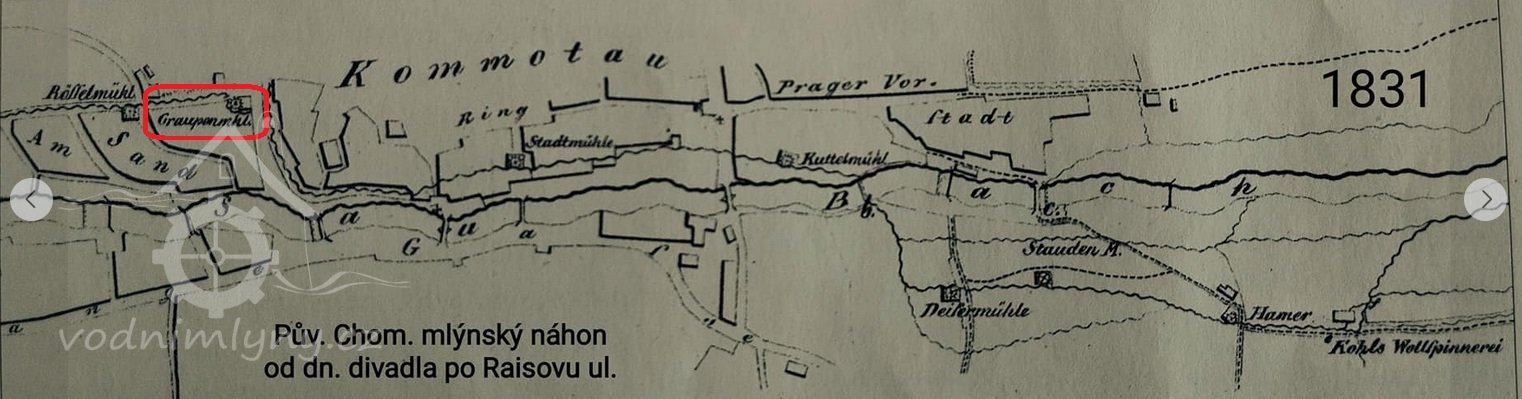 Kommotau
1831
Röſſelmühl
Graupenmhl.
Prager Vor.
Ring
ſtadt
Am
Sand
Stadtmühle
Kuttelmühl
Sau Bach
b.
c.
Gangeſ
Stauden M.
Deiſermühle
Hamer
Kohls Wollſpinnerei
vodnimlyny.cz
Pův. Chom. mlýnský náhon
od dn. divadla po Raisovu ul.